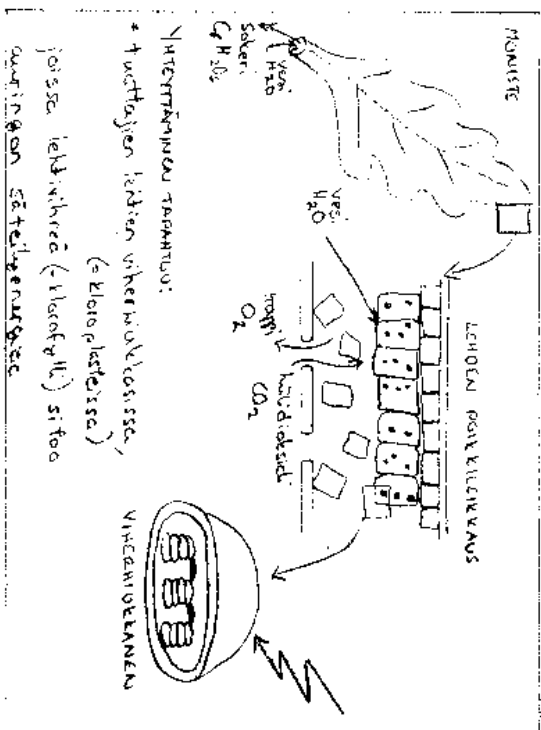 MONISTE
LEHDEN POIKKILEIKKAUS
vesi
H₂O
vesi
H₂O
sokeri
happi
O₂
hiilidioksidi
CO₂
VIHERHIUKKANEN
YHTEYTTÄMINEN TAPAHTUU:
* tuottajien lehtien viherhiukkasissa,
(= kloroplasteissa)
joissa lehtivihreä (= klorofylli) sitoo
auringon säteilyenergiaa